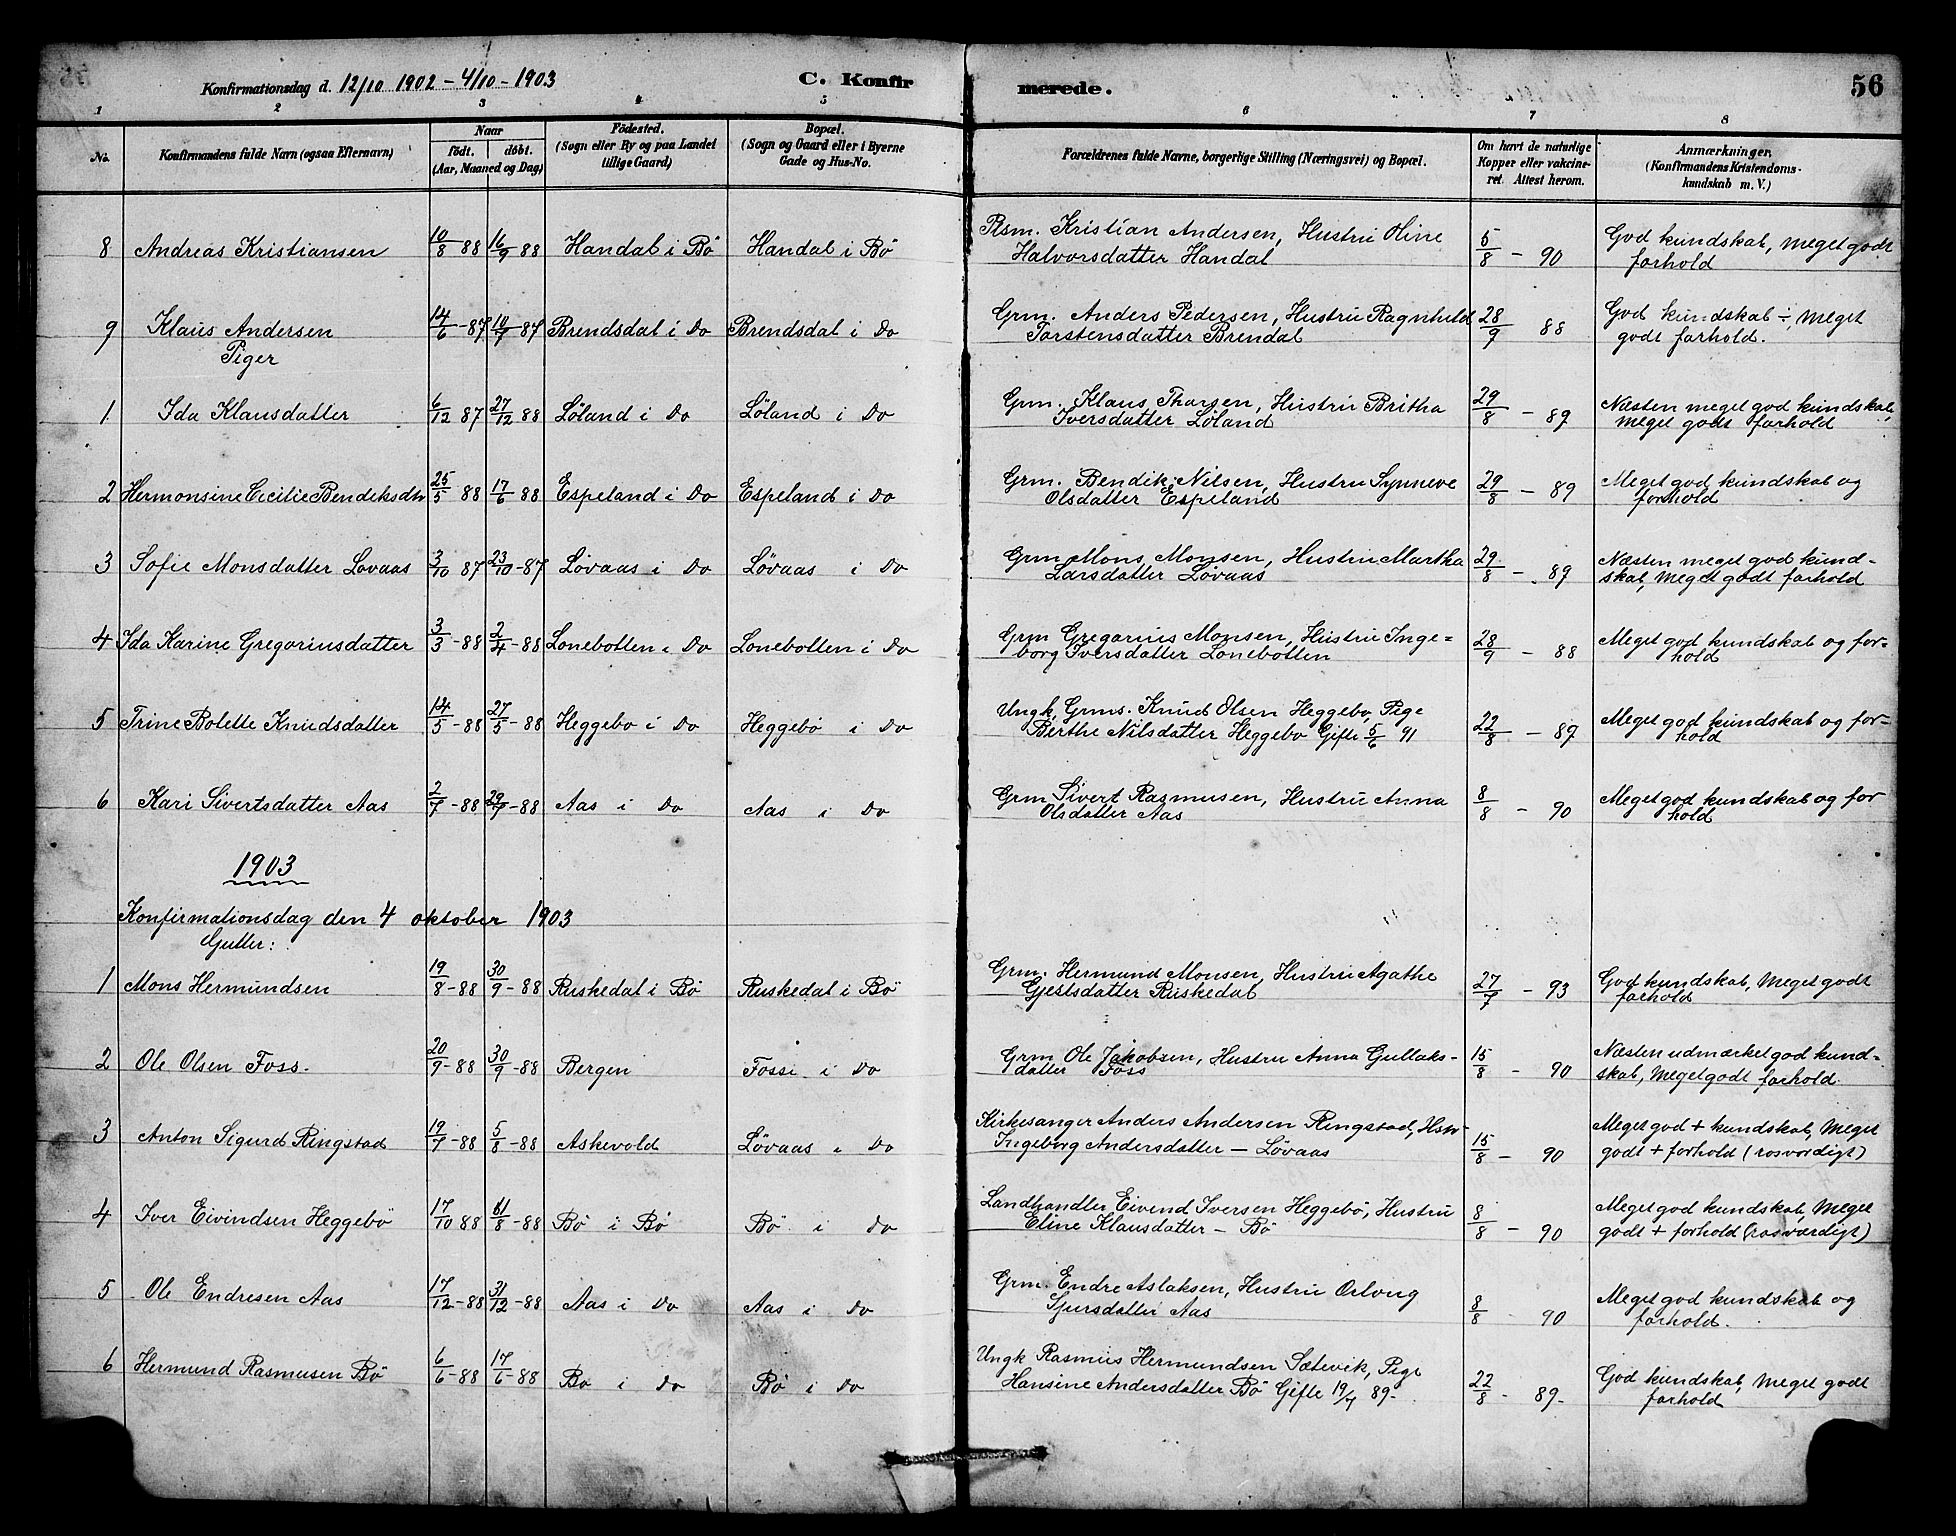 Konfirmationsdag d. 12/10 1902 - 4/10 - 1903
C. Konfirmerede.
56
1 2 3 4 5 6 7 8
No.
Konfirmandens fulde Navn (ogsaa Efternavn)
Naar
födt. döbt.
(Aar, Maaned og Dag)
Födested.
(Sogn eller By og paa Landet
tillige Gaard)
Bopæl.
(Sogn og Gaard eller i Byerne
Gade og Hus-No.
Forældrenes fulde Navne, borgerlige Stilling (Næringsvei) og Bopæl.
Om havt de naturlige
Kopper eller vakcine-
ret. Attest herom.
Anmærkninger,
(Konfirmandens Kristendoms-
kundskab m. V.)
8 Andreas Kristiansen 10/8 88 16/9 88 Handal i Bö Handal i Bö Plsm. Kristian Andersen, Hustru Oline
Halvorsdatter Handal 5/8 - 90 God kundskab, meget godt
forhold
9 Klaus Andersen 14/6 - 87 10/7 - 87 Brendsdal i Do Brendsdal i Do Grm. Anders Pedersen, Hustru Ragnhild
Torstensdatter Brendal 28/9 88 God kundskab ÷, meget
godt forhold.
Piger
1 Ida Klausdatter 6/12 87 27/12 88 Löland i Do Löland i Do Grm. Klaus Thorsen, Hustru Britha
Iversdatter Löland 29/8 - 89 Næsten meget god kundskab,
meget godt forhold
2 Hermonsine Cecilie Bendiksdtr 25/5 88 17/6 88 Espeland i Do Espeland i Do Grm. Bendik Nilsen, Hustru Synneve
Olsdatter Espeland 29/8 - 89 Meget god kundskab og
forhold
3 Sofie Monsdatter Lovaas 3/10 87 23/10 - 87 Lövaas i Do Lövaas i Do Grm Mons Monsen, Hustru Martha
Larsdatter Lövaas 29/8 - 89 Næsten meget god kund-
skab, meget godt forhold
4 Ida Karine Gregoriusdatter 3/3 - 88 2/4 - 88 Lonebotten i Do Lonebotten i Do Grm Gregorius Monsen, Hustru Inge=
borg Iversdatter Lonebotten 28/9 - 88 Meget god kundskab og for-
hold
5 Trine Bolette Knudsdatter 14/5 - 88 27/5 - 88 Heggebo i Do Heggebö i Do Ungk, Grms. Knud Olsen Heggebo, Pige
Berthe Nilsdatter Heggebo Gifte 5/6 91 22/8 - 89 Meget god kundskab og for-
hold
6 Kari Sivertsdatter Aas 2/7 - 88 29/7 - 88 Aas i Do Aas i Do Grm Sivert Rasmusen, Hustru Anna
Olsdatter Aas 8/8 - 90 Meget god kundskab og for
hold
1903
Konfirmationsdag den 4 oktober 1903
Gutter:
1 Mons Hermundsen 19/8 - 88 30/9 - 88 Ruskedal i Bö Ruskedal i Bö Grm. Hermund Monsen, Hustru Agathe
Gjestsdatter Ruskedal 27/7 - 93 God kundskab, meget godt
forhold
2 Ole Olsen Foss. 20/9 - 88 30/9 - 88 Bergen Fossi i Do Grm Ole Jakobsen, Hustru Anna Gullaks-
datter Foss 15/8 - 90 Næsten udmærket god kund-
skab, meget godt forhold.
3 Anton Sigurd Ringstad 19/7 - 88 5/8 - 88 Askevold Lövaas i Do Kirkesanger Anders Andersen Ringstad, Hstr
Ingeborg Andersdatter - Lövaas 15/8 - 90 Meget god + kundskab, meget
godt + forhold (rosvordigt)
4 Iver Eivindsen Heggebö 17/10 88 /8 - 88 Bö i Bö Bö i Do Landhandler Eivend Iversen Heggebö, Hustru
Eline Klausdatter - Bö 8/8 - 90 Meget god kundskab, meget
godt + forhold (rosværdigt)
5 Ole Endresen Aas 17/12 - 88 31/12 - 88 Aas i Do Aas i Do Grm. Endre Aslaksen, Hustru
Sjursdatter Aas 8/8 - 90 Meget god kundskab og
forhold.
6 Hermund Rasmusen Bö 6/6 - 88 17/6 - 88 Bo i Do Bö i Do Ungk Rasmus Hermundsen Sætevik, Pige
Hansine Andersdatter Bö Gifte 19/7 89- 22/8 - 89- God kundskab, meget godt
forhold